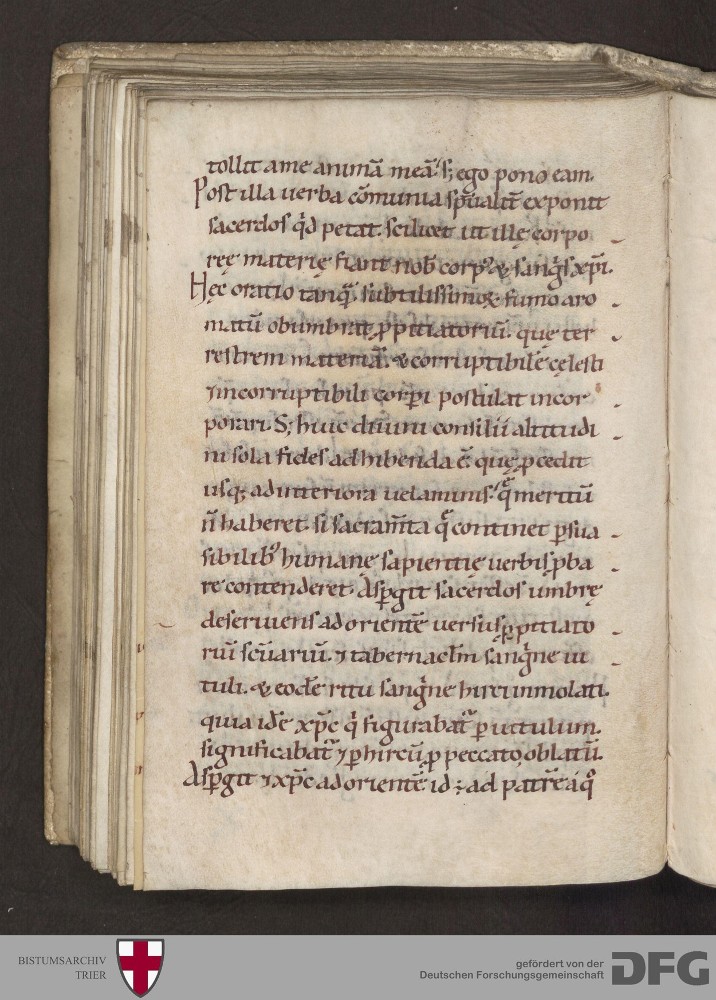 tollit a me animā meā. s; ego pono eam.
Post illa uerba cōmunia sp̄ualit̄ exponit
sacerdos qd̄ petat. scilicet ut illę corpo
ręe materię fiant nob̄ corp᷒ & sang̍s xp̄i.
Hęc oratio tanquā subtilissimo ex fumo aro
matū obumbrat ꝓpitiatoriū. que ter
restrem materiā & corruptibilē cęlesti
⁊ incorruptibili corp̄i postulat incor
porari. S; huic diuini consilii altitudi
ni sola fides adhibenda ē. quę ꝓcedit
usq; ad interiora uelaminis. q̄ meritū
n̄ haberet. si sacram̄ta q̄ continet ꝑsua
sibilib᷒ humanę sapientię uerbis ꝓba
re contenderet. Aspgit sacerdos umbrę
deseruiens ad orientē uersus ꝓpitiato
riū sc̄uariū. ⁊ tabernacl̄m sang̍ne ui
tuli. & eodē ritu sang̍ne hirci inmolati.
quia idē xp̄c q̍ figurabat᷑ ꝑ uitulum.
significabat᷑ ⁊ ꝑ hircū ꝓ peccato oblatū.
Aspgit ⁊ xp̄c ad orientē. id ÷ ad patrē a q̊
BISTUMSARCHIV
TRIER
gefördert von der
Deutschen Forschungsgemeinschaft
DFG